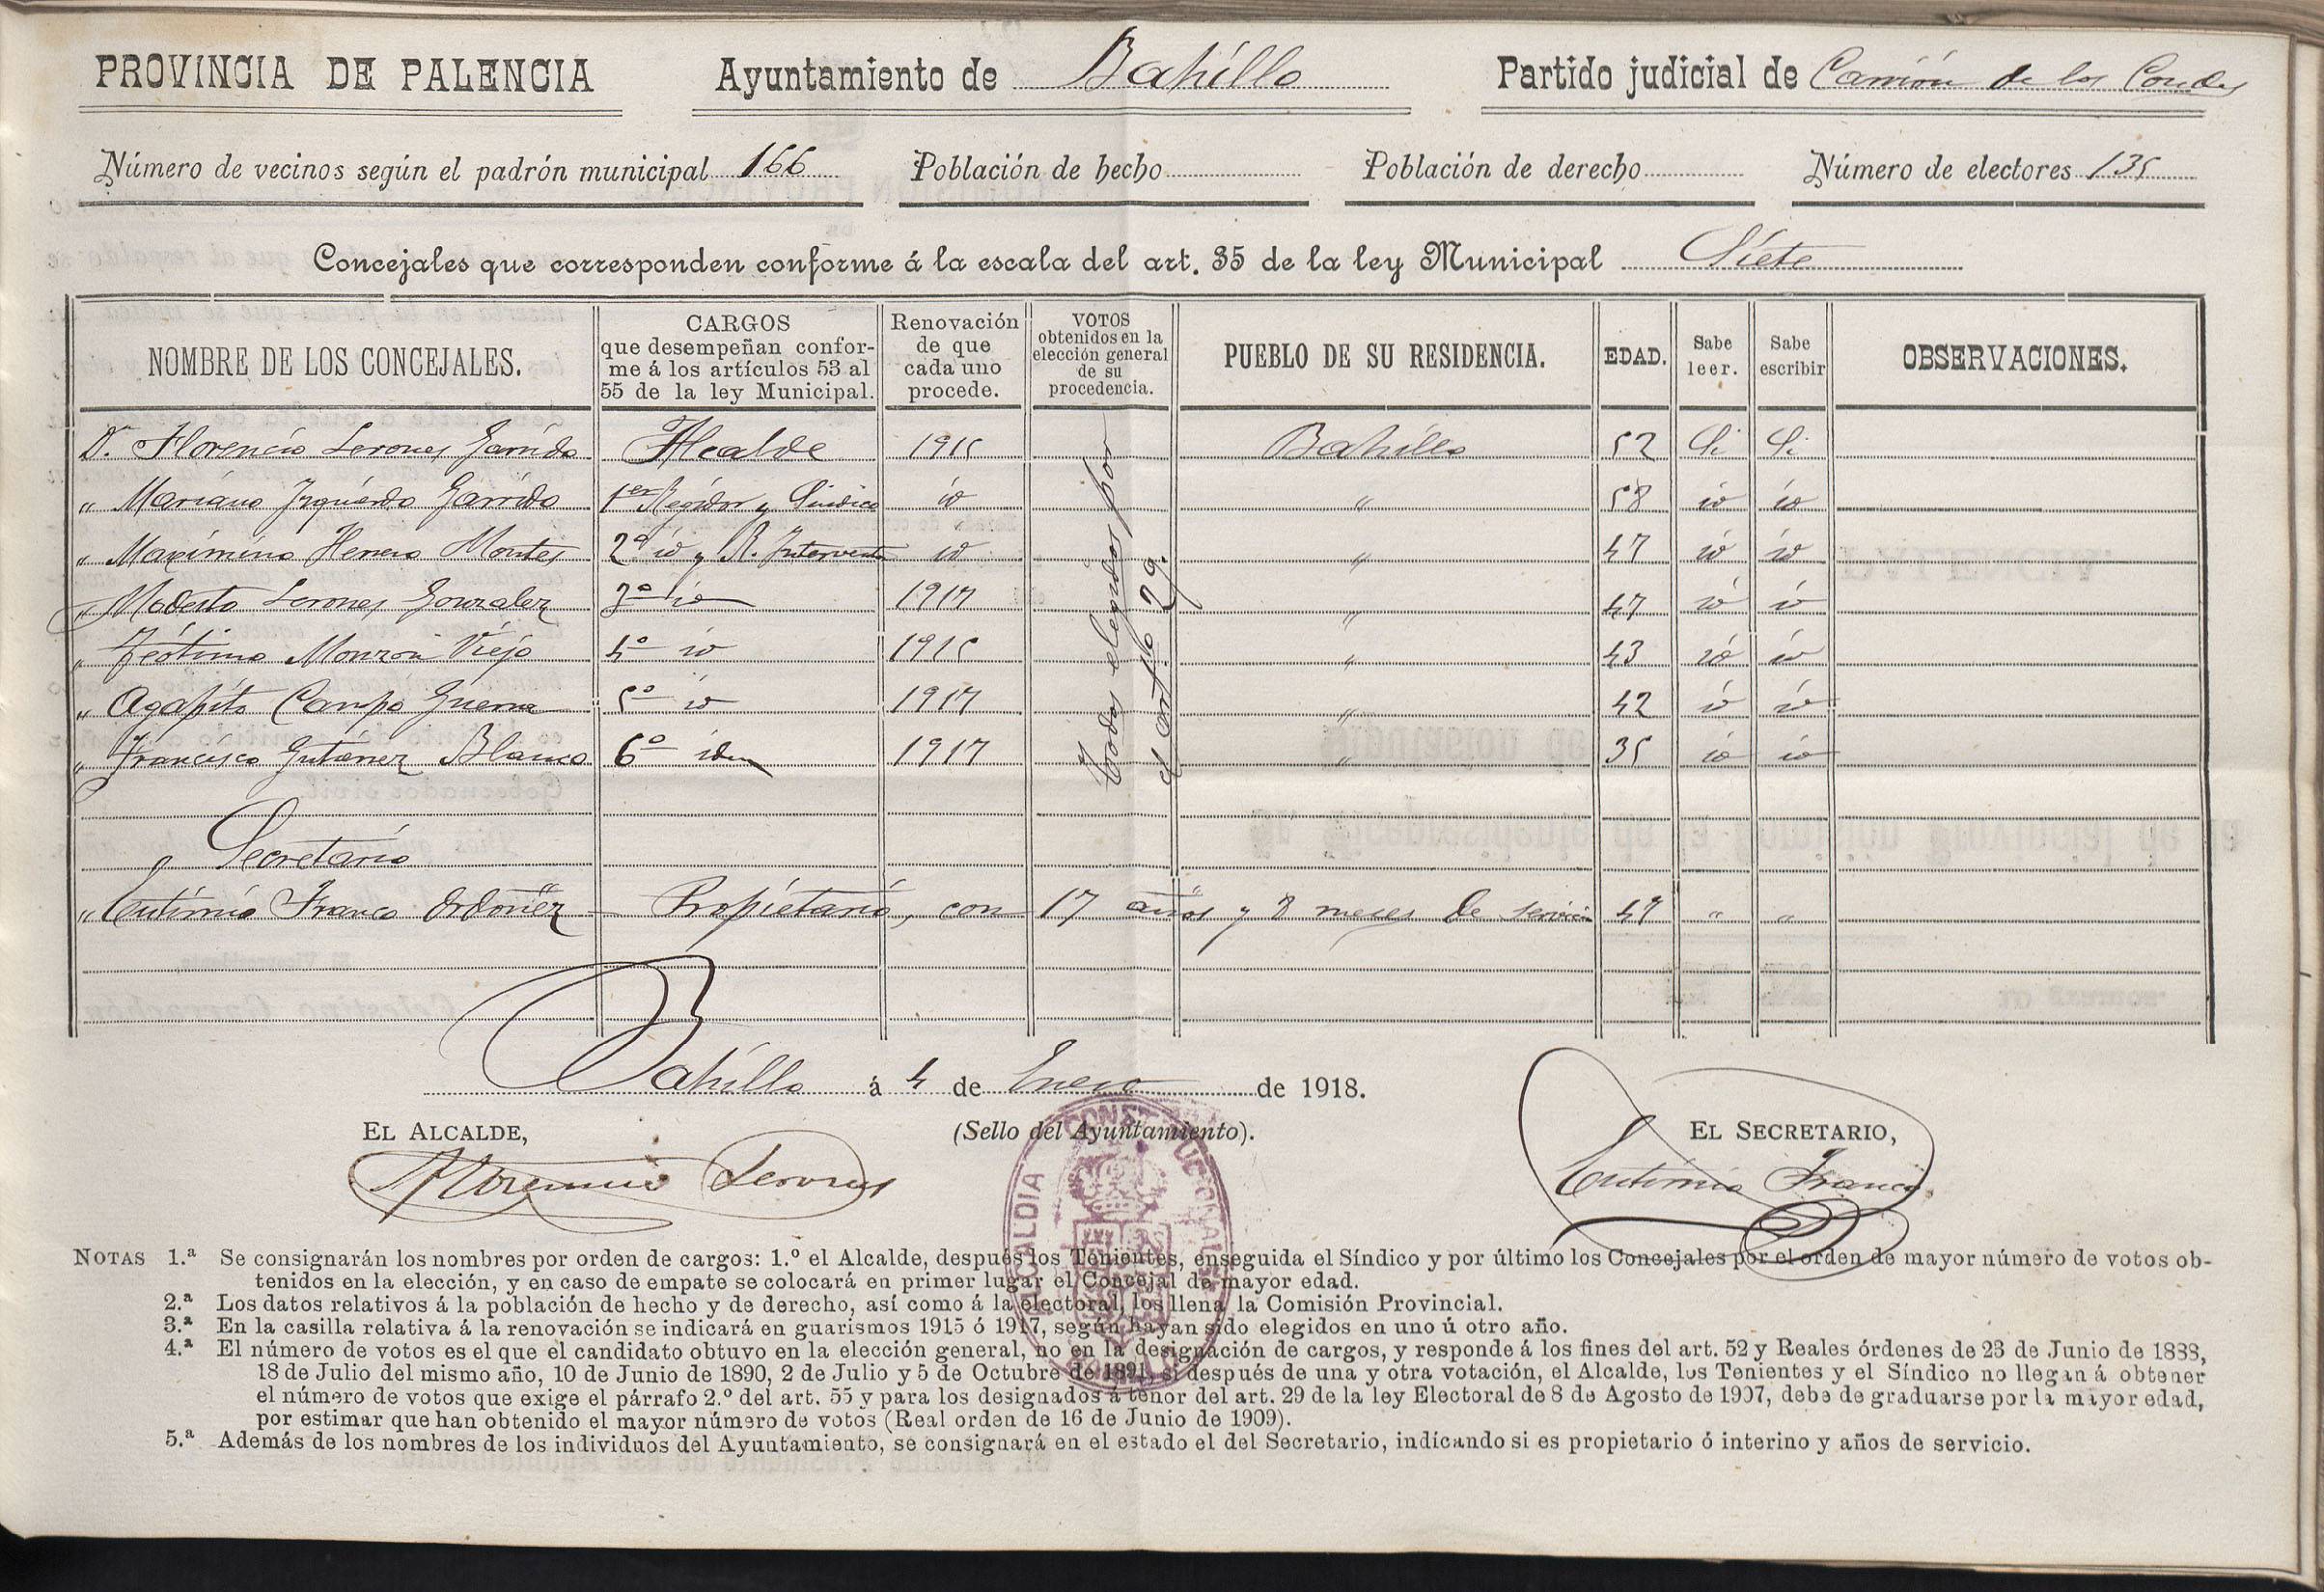 PROVINCIA DE PALENCIA Ayuntamiento de Bahillo Partido judicial de Carrión de los Condes
Número de vecinos según el padrón municipal 166 Población de hecho Población de derecho Número de electores 135
Concejales que corresponden conforme á la escala del art. 35 de la ley Municipal Siete
NOMBRE DE LOS CONCEJALES. CARGOS que desempeñan confor- me á los artículos 53 al 55 de la ley Municipal. Renovación de que cada uno procede. VOTOS obtenidos en la elección general de su procedencia. PUEBLO DE SU RESIDENCIA. EDAD. Sabe leer. Sabe escribir OBSERVACIONES.
D. Florencio Lerones Garrido Alcalde 1915 Bahillo 52 Si Si
" Mariano Izquierdo Garrido 1er Regidor y Sindico id " 58 id id
" Maximino Herrero Montes 2º id y R. Interventor id " 47 id id
" Modesto Lerones Gonzalez 3º id 1917 " 47 id id
" Teótimo Monzon Viejo 4º id 1915 " 43 id id
" Agapito Campo Guerra 5º id 1917 " 42 id id
" Francisco Gutierrez Blanco 6º idem 1917 " 35 id id
Todos elegidos por
el artº 29.
Secretario
" Eutimio Franco Ordoñez - Propietario, con 17 años y 8 meses de servicio 49 " "
Bahillo á 4 de Enero de 1918.
EL ALCALDE, (Sello del Ayuntamiento). EL SECRETARIO,
Florencio Lerones Eutimio Franco
ALCALDIA CONSTITUCIONAL
NOTAS 1.ª Se consignarán los nombres por orden de cargos: 1.º el Alcalde, después los Tenientes, enseguida el Síndico y por último los Concejales por el orden de mayor número de votos ob-
tenidos en la elección, y en caso de empate se colocará en primer lugar el Concejal de mayor edad.
2.ª Los datos relativos á la población de hecho y de derecho, así como á la electoral, los llena la Comisión Provincial.
3.ª En la casilla relativa á la renovación se indicará en guarismos 1915 ó 1917, según hayan sido elegidos en uno ú otro año.
4.ª El número de votos es el que el candidato obtuvo en la elección general, no en la designación de cargos, y responde á los fines del art. 52 y Reales órdenes de 23 de Junio de 1888,
18 de Julio del mismo año, 10 de Junio de 1890, 2 de Julio y 5 de Octubre de 1891, si después de una y otra votación, el Alcalde, los Tenientes y el Síndico no llegan á obtener
el número de votos que exige el párrafo 2.º del art. 55 y para los designados á tenor del art. 29 de la ley Electoral de 8 de Agosto de 1907, debe de graduarse por la mayor edad,
por estimar que han obtenido el mayor número de votos (Real orden de 16 de Junio de 1909).
5.ª Además de los nombres de los individuos del Ayuntamiento, se consignará en el estado el del Secretario, indicando si es propietario ó interino y años de servicio.